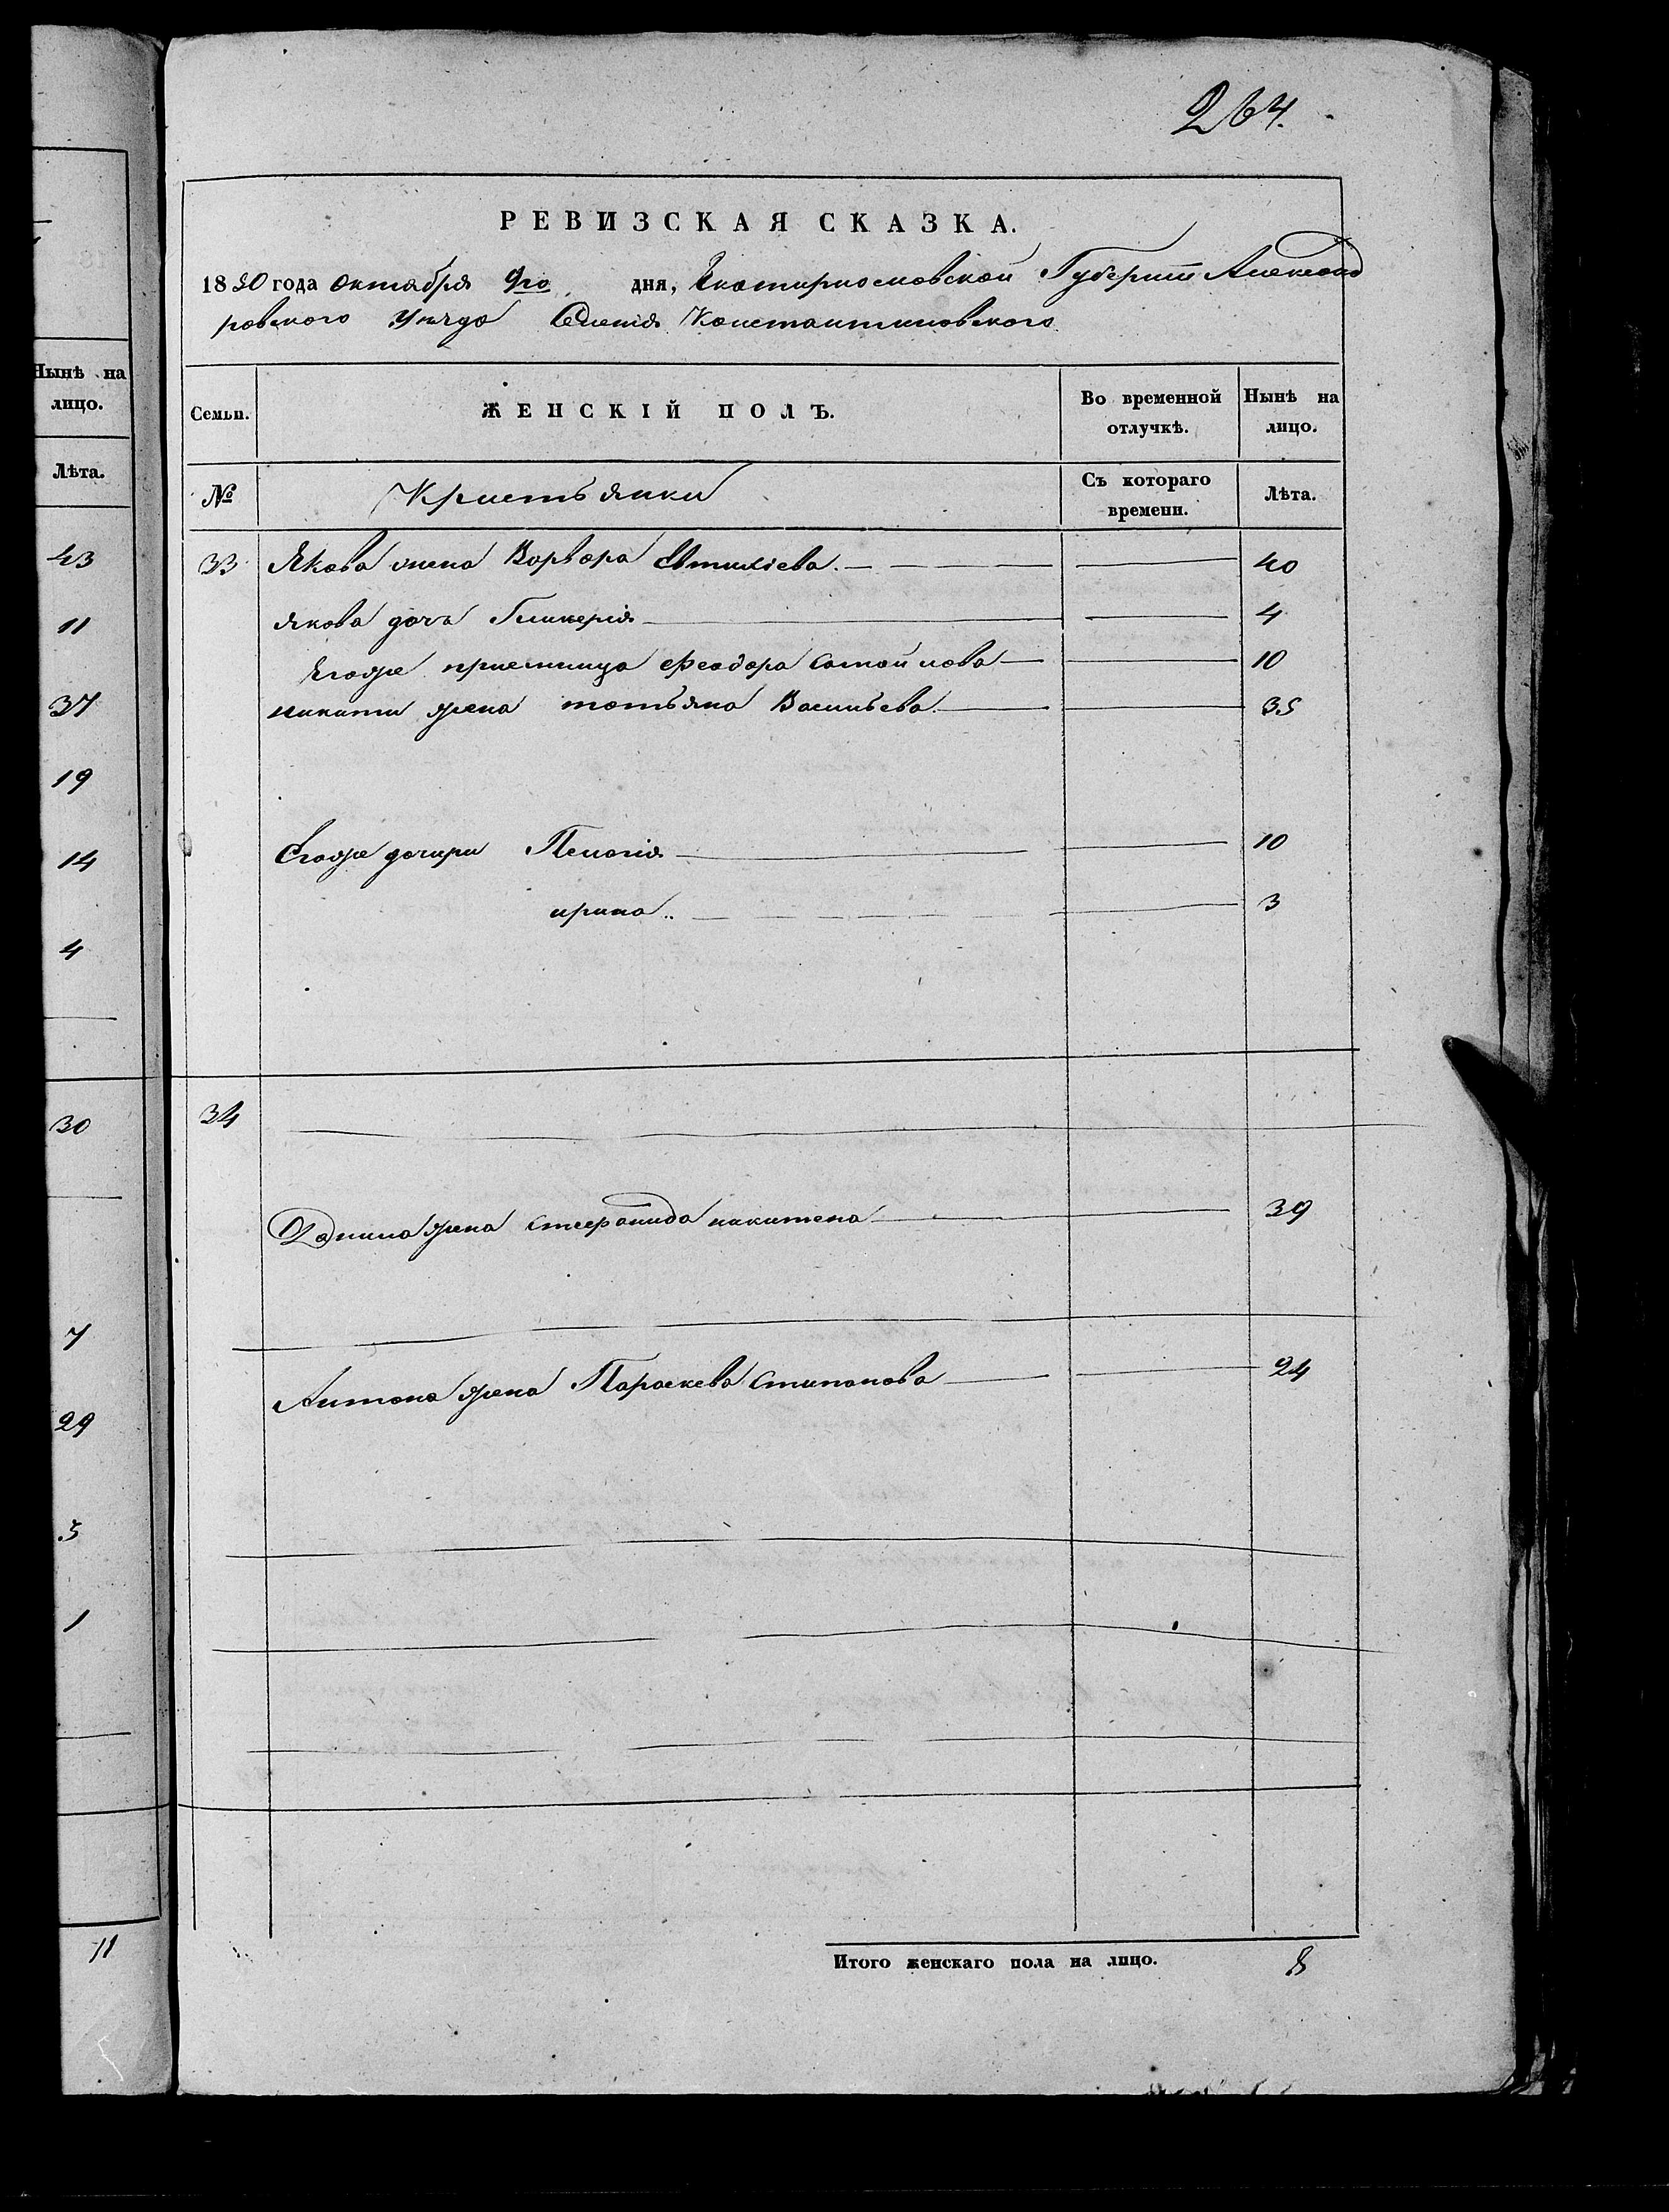 264.
РЕВИЗСКАЯ СКАЗКА.
1850 года октября 9го дня, Екатиринословской Губернии Александ
ровского уезда Селения Константиновского
Нынѣ на
лицо.
Лѣта.
43
11
37
19
14
4
30
7
29
5
1
11
Семьи. ЖЕНСКІЙ ПОЛЪ. Во временной отлучкѣ. Нынѣ на лицо.
№ Кристьянки Съ котораго времени. Лѣта.
33 Якова жена Варвара Евтихіева 40
Якова дочь Гликерія 4
Егоже приемница Феодора Самойлова 10
Никити жена татьяна Васильева 35
Егоже дочири Пелагія 10
ирина 3
34
Данила жена стефанида никитена 39
Антона жена Параскева Стипанова 24
Итого женскаго пола на лицо. 8